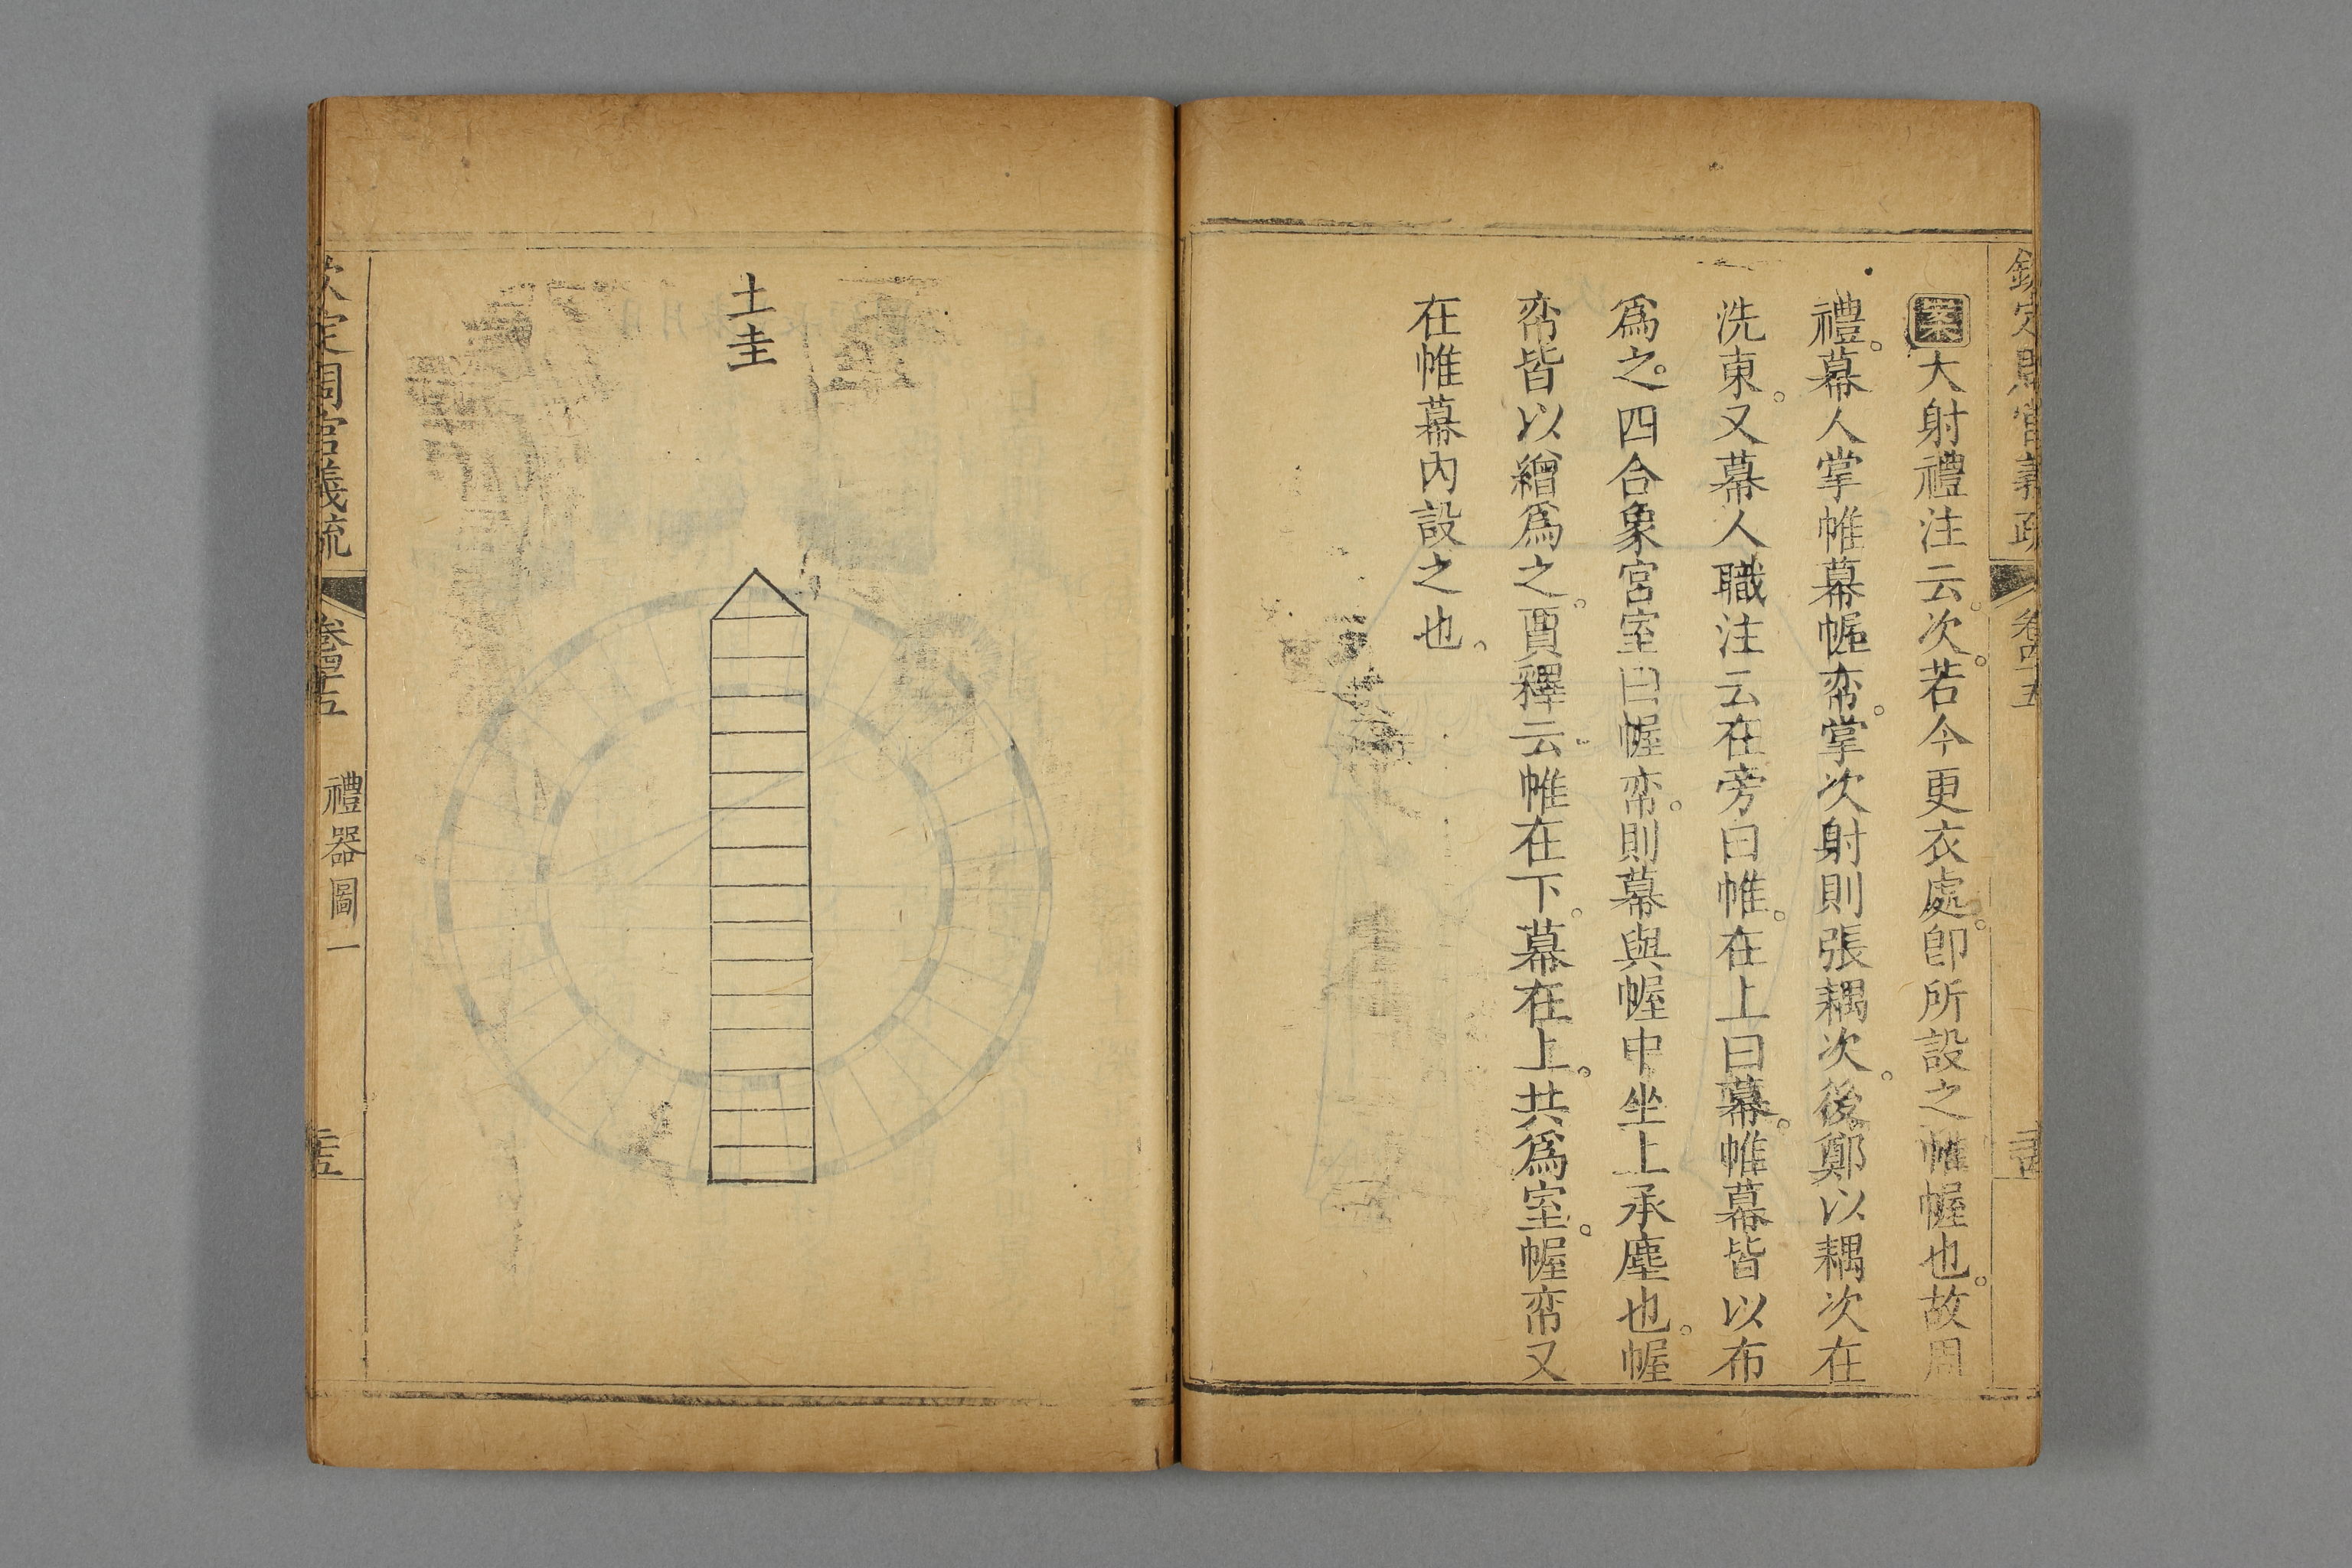 欽定周官義疏 卷四十五
案大射禮注云。次。若今更衣處。卽所設之帷幄也。故周
禮。幕人掌帷幕幄帟。掌次射則張耦次。後鄭以耦次在
洗東。又幕人職注云在旁曰帷。在上曰幕。帷幕皆以布
爲之。四合象宮室曰幄帟。則幕與幄中坐上承塵也。幄
帟皆以繒爲之。賈釋云。帷在下。幕在上。共爲室。幄帟又
在帷幕內設之也。
土圭
欽定周官義疏 卷四十五 禮器圖一